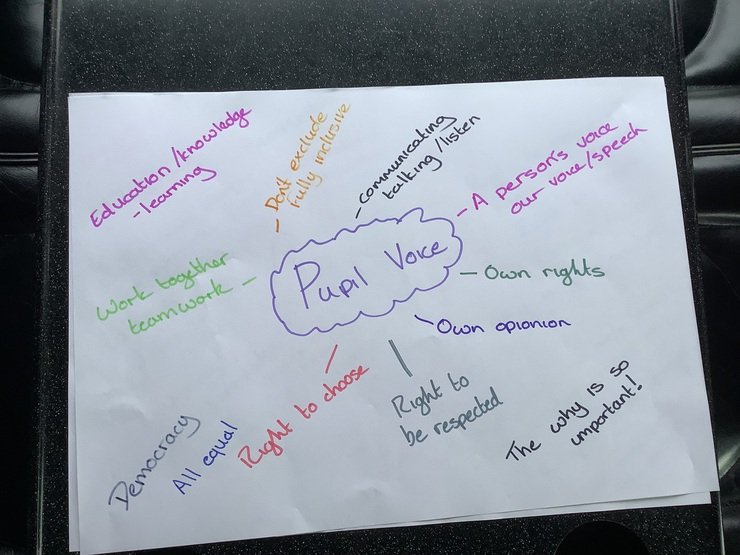 Education/knowledge
- learning
- Don't exclude
fully inclusive
- Communicating
talking/listen
- A person's voice
our voice/speech
Work together
teamwork -
Pupil Voice
- Own rights
- Own opionion
Right to choose
Right to
be respected
Democracy
All equal
The why is so
important!